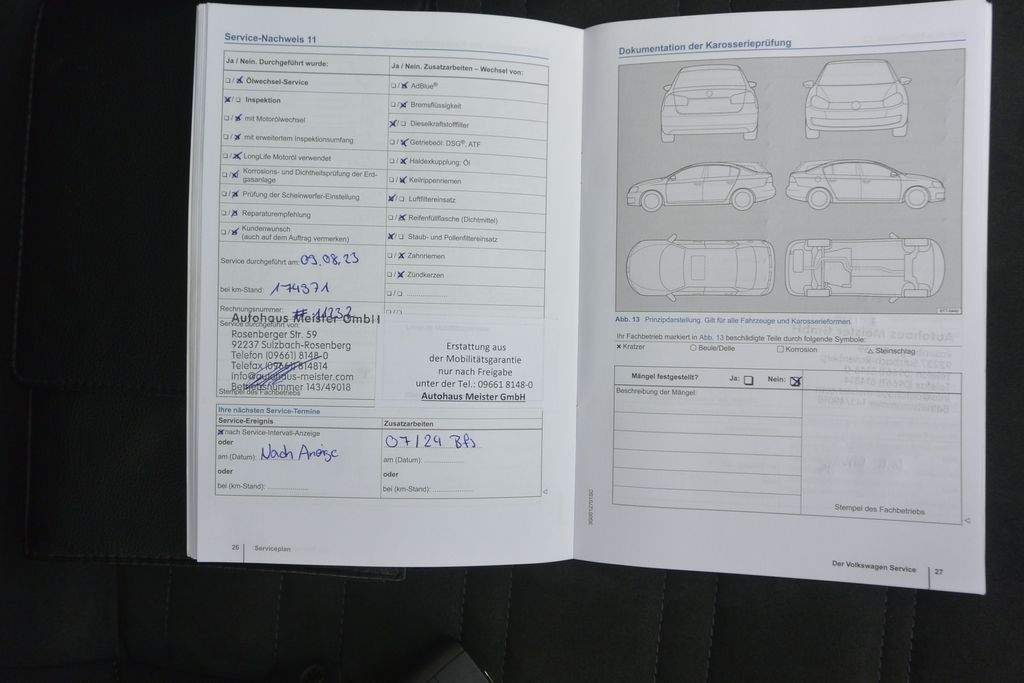 Service-Nachweis 11
Ja / Nein. Durchgeführt wurde:
Ja / Nein. Zusatzarbeiten – Wechsel von:
❏ / ☒ Ölwechsel-Service
☒ / ❏ Inspektion
❏ / ☒ mit Motorölwechsel
❏ / ☒ mit erweitertem Inspektionsumfang
❏ / ☒ LongLife Motoröl verwendet
❏ / ☒ Korrosions- und Dichtheitsprüfung der Erd-
gasanlage
❏ / ☒ Prüfung der Scheinwerfer-Einstellung
❏ / ☒ Reparaturempfehlung
❏ / ☒ Kundenwunsch
(auch auf dem Auftrag vermerken)
❏ / ☒ AdBlue®
❏ / ☒ Bremsflüssigkeit
☒ / ❏ Dieselkraftstofffilter
❏ / ☒ Getriebeöl: DSG®, ATF
❏ / ☒ Haldexkupplung: Öl
❏ / ☒ Keilrippenriemen
☒ / ❏ Luftfiltereinsatz
❏ / ☒ Reifenfüllflasche (Dichtmittel)
☒ / ❏ Staub- und Pollenfiltereinsatz
❏ / ☒ Zahnriemen
❏ / ☒ Zündkerzen
❏ / ❏ ....................
❏ / ❏
Service durchgeführt am: 09.08.23
bei km-Stand: 174371
Rechnungsnummer: # 11232
Service durchgeführt von:
Autohaus Meister GmbH
Rosenberger Str. 59
92237 Sulzbach-Rosenberg
Telefon (09661) 8148-0
Telefax (09661) 814814
info@autohaus-meister.com
Betriebsnummer 143/49018
Stempel des Fachbetriebs
Erstattung aus
der Mobilitätsgarantie
nur nach Freigabe
unter der Tel.: 09661 8148-0
Autohaus Meister GmbH
Ihre nächsten Service-Termine
Service-Ereignis
Zusatzarbeiten
☒ nach Service-Intervall-Anzeige
oder
am (Datum): Nach Anzeige
oder
bei (km-Stand): ....................
07/24 Bfs
am (Datum): ....................
oder
bei (km-Stand): ....................
26 Serviceplan
Dokumentation der Karosserieprüfung
Abb. 13 Prinzipdarstellung. Gilt für alle Fahrzeuge und Karosserieformen.
Ihr Fachbetrieb markiert in Abb. 13 beschädigte Teile durch folgende Symbole:
× Kratzer ○ Beule/Delle □ Korrosion △ Steinschlag
Mängel festgestellt? Ja: ❏ Nein: ☒
Beschreibung der Mängel:
Stempel des Fachbetriebs
Der Volkswagen Service 27